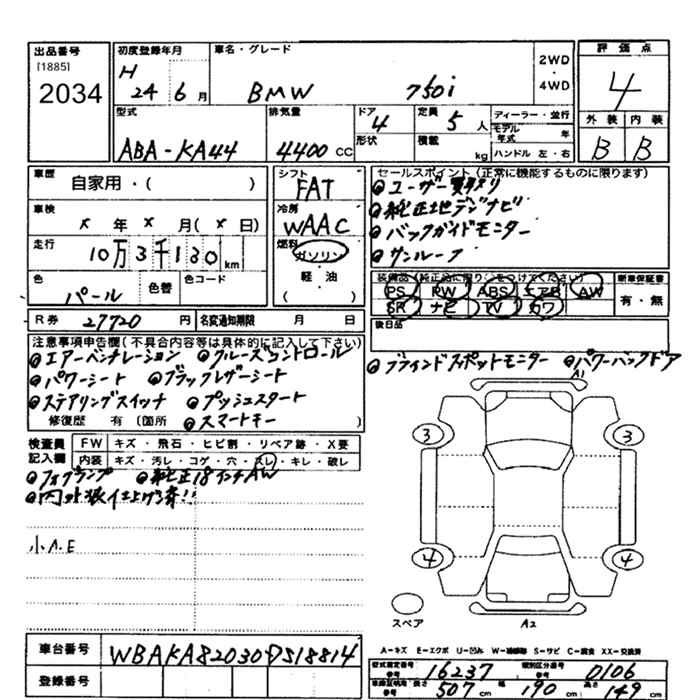 出品番号
[1885]
2034
初度登録年月
H
24 6 月
車名・グレード
BMW 750i
2WD
・
4WD
評価点
4
外装 内装
B B
型式
ABA-KA44
排気量
4400 CC
ドア
4
形状
定員
5 人
積載
kg
ディーラー・並行
モデル年式 年
ハンドル 左・右
車歴
自家用・( )
車検
x 年 x 月( x 日)
走行
10万3千130 km
色
パール
色替
色コード
シフト
FAT
冷房
WAAC
燃料
ガソリン
・
軽・油
( )
セールスポイント(正常に機能するものに限ります)
ユーザー買取り
純正地デジナビ
バックガイドモニター
サンルーフ
装備品(純正品に限り○をつけてください)
PS PW ABS エアB AW
SR ナビ TV カワ
新車保証書
有・無
R券 27720 円
名変通知期限 月 日
後日品
注意事項申告欄(不具合内容等は具体的に記入して下さい)
エアーベンチレーション クルーズコントロール
パワーシート ブラックレザーシート
ステアリングスイッチ プッシュスタート
修復歴 有(箇所 スマートキー
ブラインドスポットモニター パワーバックドア
検査員
記入欄
FW キズ・飛石・ヒビ割・リペア跡・X要
内装 キズ・汚レ・コゲ・穴・スレ・キレ・破レ
フォグランプ 純正18インチAW
内外装仕上げ済!!
小A.E
3 3
4 4
スペア
A2
A-キズ E-エクボ U-凹み W-補修跡 S-サビ C-腐食 XX-交換済
車台番号 WBAKA82030DS18814
登録番号
型式指定番号
参考
16237
類別区分番号
参考
0106
車検証明用
参考
長さ 507 cm 幅 190 cm 高さ 149 cm